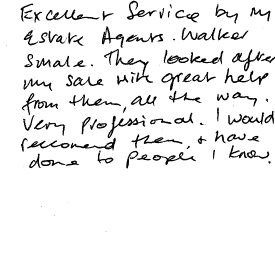 Excellent Service by my
Estate Agents. Walker
Smale. They looked after
my sale with great help
from them, all the way.
Very professional. I would
reccomend them, & have
done to people I know.